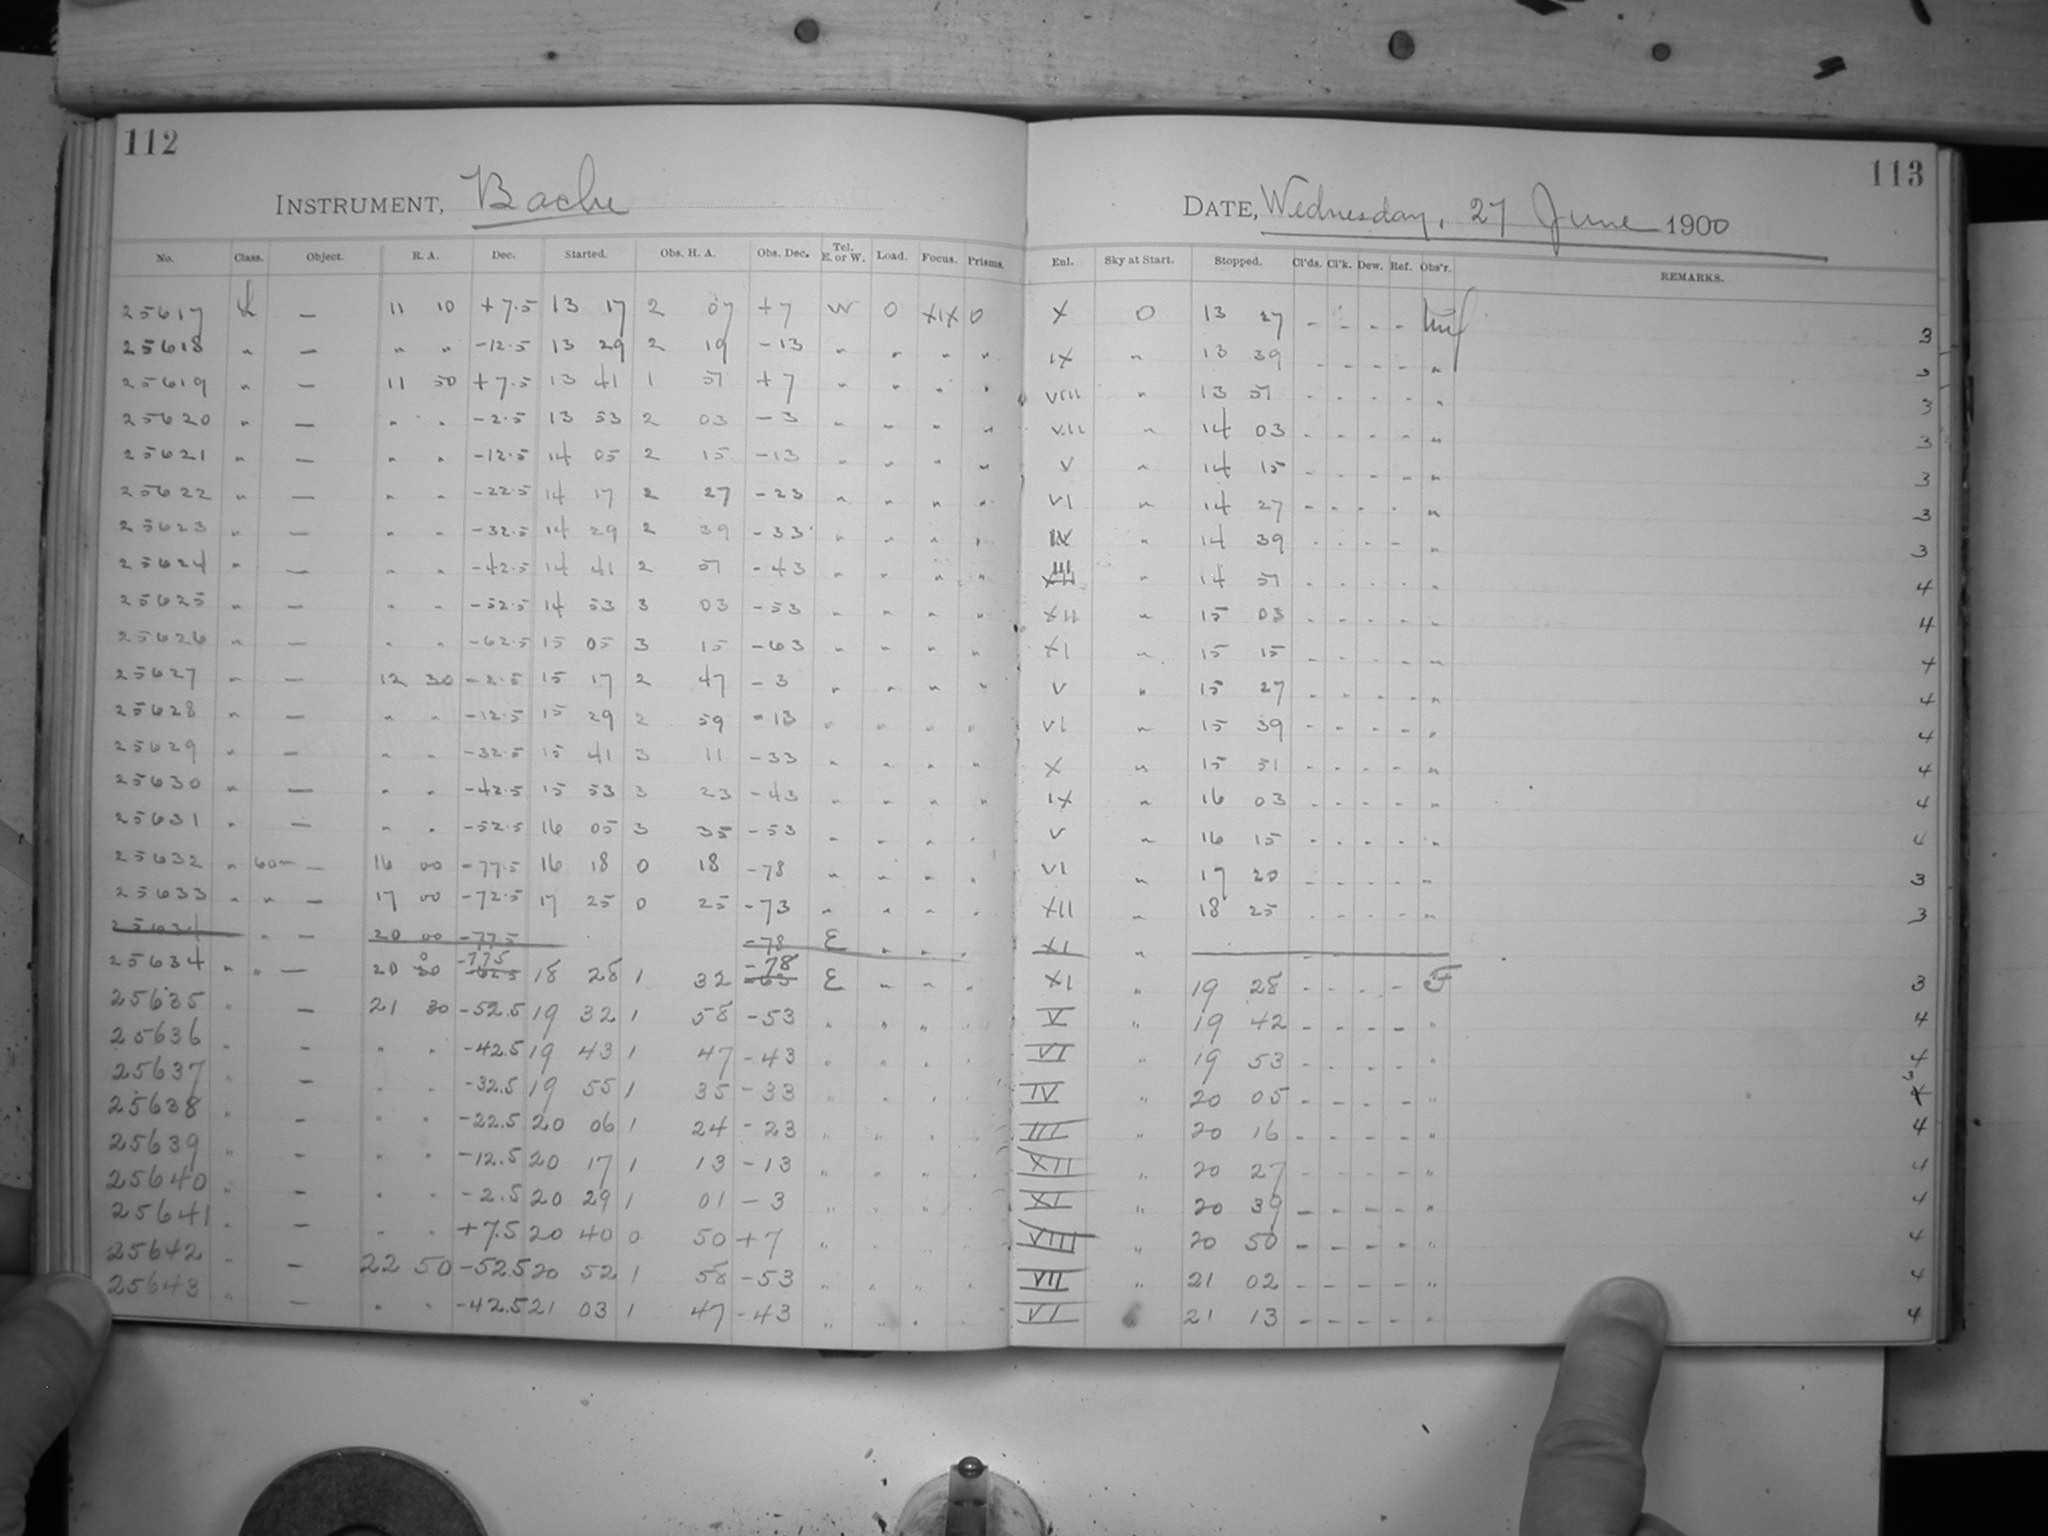 112
113
INSTRUMENT, Bache
DATE, Wednesday, 27 June 1900
No. Class. Object. R. A. Dec. Started. Obs. H. A. Obs. Dec. Tel. E. or W. Load. Focus. Prisms. Enl. Sky at Start. Stopped. Cl'ds. Cl'k. Dew. Ref. Obs'r. REMARKS.
25617 L — 11 10 +7.5 13 17 2 07 +7 W 0 XIX 0 X 0 13 27 - - - - 3
25618 " — " " -12.5 13 29 2 19 -13 " " " " IX " 13 39 - - - - " 3
25619 " — 11 50 +7.5 13 41 1 51 +7 " " " " VIII " 13 51 - - - - " 3
25620 " — " " -2.5 13 53 2 03 -3 " " " " VII " 14 03 - - - - " 3
25621 " — " " -12.5 14 05 2 15 -13 " " " " V " 14 15 - - - - " 3
25622 " — " " -22.5 14 17 2 27 -23 " " " " VI " 14 27 - - - - " 3
25623 " — " " -32.5 14 29 2 39 -33 " " " " IV " 14 39 - - - - " 3
25624 " — " " -42.5 14 41 2 51 -43 " " " " III " 14 51 - - - - " 4
25625 " — " " -52.5 14 53 3 03 -53 " " " " XII " 15 03 - - - - " 4
25626 " — " " -62.5 15 05 3 15 -63 " " " " XI " 15 15 - - - - " 4
25627 " — 12 30 -2.5 15 17 2 47 -3 " " " " V " 15 27 - - - - " 4
25628 " — " " -12.5 15 29 2 59 -13 " " " " VI " 15 39 - - - - " 4
25629 " — " " -32.5 15 41 3 11 -33 " " " " X " 15 51 - - - - " 4
25630 " — " " -42.5 15 53 3 23 -43 " " " " IX " 16 03 - - - - " 4
25631 " — " " -52.5 16 05 3 35 -53 " " " " V " 16 15 - - - - " 4
25632 " 60m — 16 00 -77.5 16 18 0 18 -78 " " " " VI " 17 20 - - - - " 3
25633 " " — 17 00 -72.5 17 25 0 25 -73 " " " " XII " 18 25 - - - - " 3
25634 " — 20 00 -77.5 -78 E " " " XI "
25634 " " — 20 0 -77.5 18 28 1 32 -78 E " " " XI " 19 28 - - - - F 3
25635 " — 21 30 -52.5 19 32 1 58 -53 " " " " V " 19 42 - - - - " 4
25636 " — " " -42.5 19 43 1 47 -43 " " " " VI " 19 53 - - - - " 4
25637 " — " " -32.5 19 55 1 35 -33 " " " " IV " 20 05 - - - - " 3
25638 " — " " -22.5 20 06 1 24 -23 " " " " III " 20 16 - - - - " 4
25639 " — " " -12.5 20 17 1 13 -13 " " " " XII " 20 27 - - - - " 4
25640 " — " " -2.5 20 29 1 01 -3 " " " " XI " 20 39 - - - - " 4
25641 " — " " +7.5 20 40 0 50 +7 " " " " VIII " 20 50 - - - - " 4
25642 " — 22 50 -52.5 20 52 1 58 -53 " " " " VII " 21 02 - - - - " 4
25643 " — " " -42.5 21 03 1 47 -43 " " " " VI 21 13 - - - - " 4